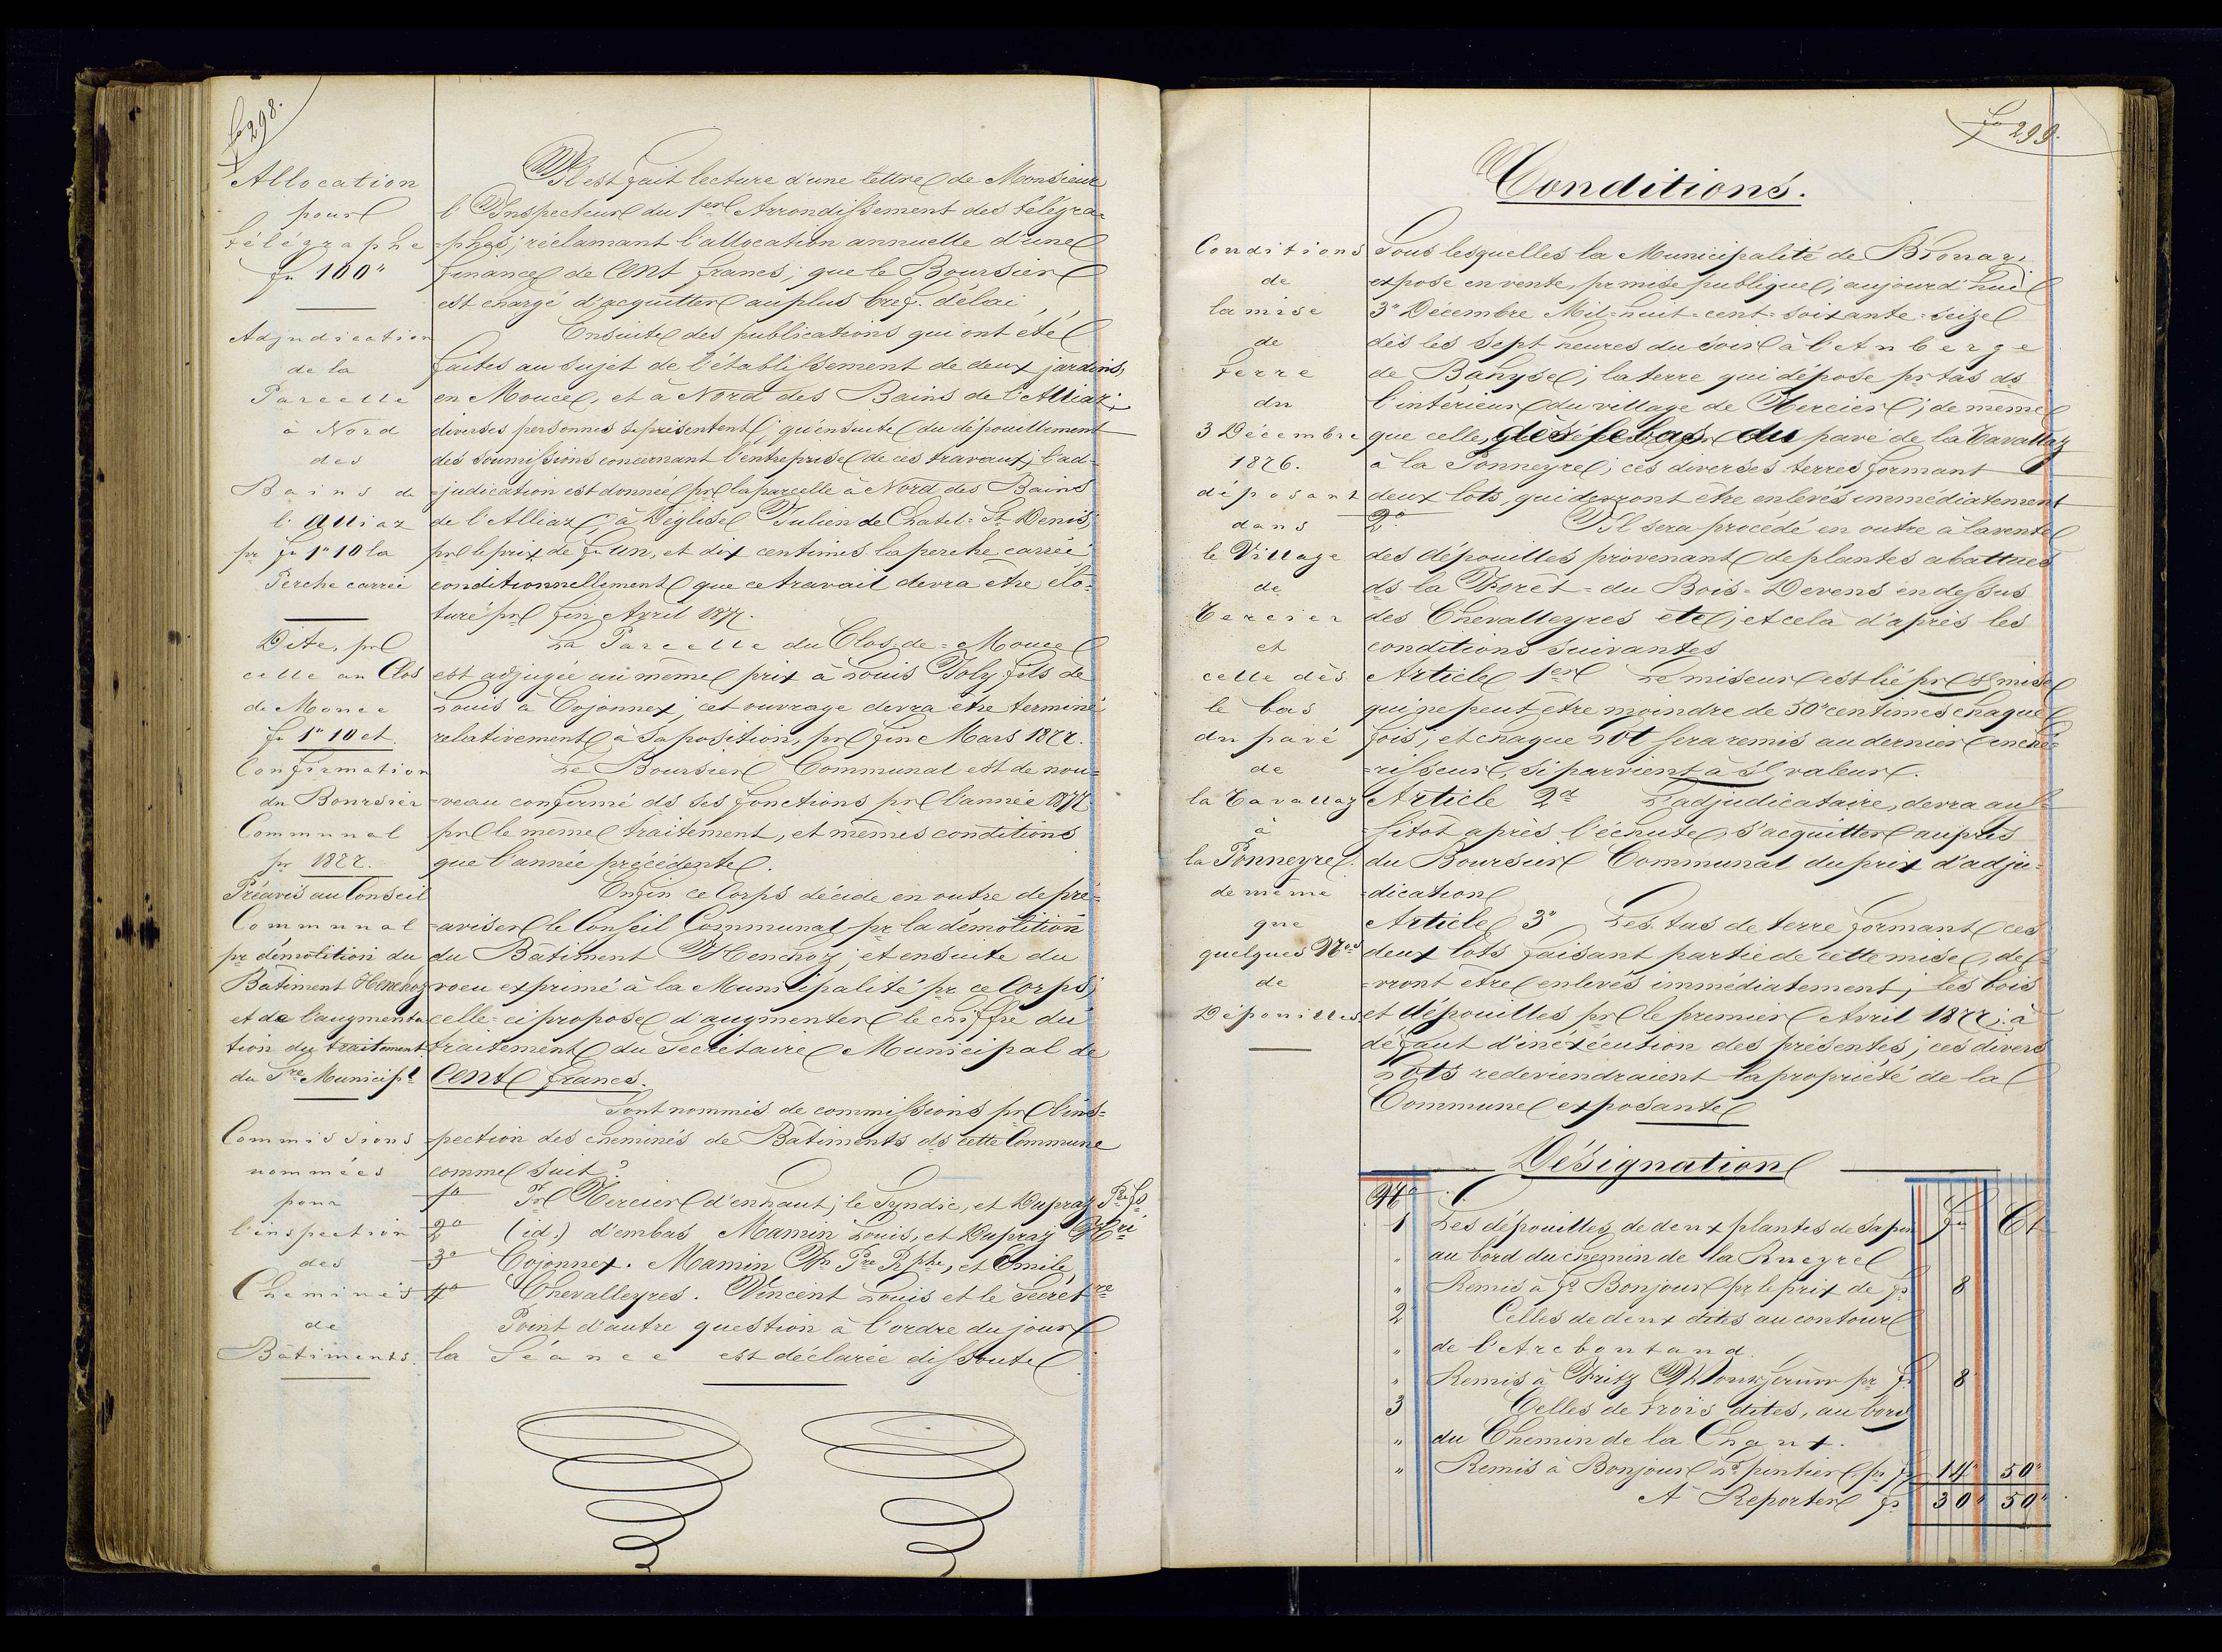 fo 298.
Allocation
pour
télégraphe
fr 100"
Adjudication
de la
Parcelle
à Nord
des
Bains de
l'alliaz
pr fr 1" 10 la
Perche carrée
Dite, pr
celle au Clos
de Mouce
fr 1" 10 ct.
Confirmation
du Boursier
Communal
pr 1877.
Préavis au Conseil
Communal
pr démolition du
Bâtiment Henchoz
et de l'augmenta
tion du traitement
du Sre Municipl
Commissions
nommées
pour
l'inspection
des
Cheminés
de
Bâtiments.
Il est fait lecture d'une lettre de Monsieur
l'Inspecteur du 1er Arrondissement des télégra=
=phes; réclamant l'allocation annuelle d'une
finance de Cent francs; que le Boursier
est chargé d'acquitter au plus bref. délai
Ensuite des publications qui ont été
faites au sujet de l'établissement de deux jardins,
en Mouce, et à Nord des Bains de l'Alliaz;
diverses personnes se présentent; qu'ensuite du dépouillement
des soumissions concernant l'entreprise de ces travaux; l'ad=
=judication est donnée pr la parcelle à Nord des Bains
de l'Alliaz, à Déglise Julien de Chatel=St Denis;
pr le prix de fr Un, et dix centimes la perche carrée
conditionnellement que ce travail devra être clo=
turé pr fin Avril 1877.
La Parcelle du Clos=de=Mouce
est adjugée au même prix à Louis Joly fils de
Louis à Cojonnex; cet ouvrage devra être terminé
relativement à sa position, pr fin Mars 1877.
Le Boursier Communal est de nou=
=veau confirmé ds ses fonctions pr l'année 1877
pr le même traitement, et mêmes conditions
que l'année précédente.
Enfin ce Corps décide en outre de pré=
=aviser le Conseil Communal pr la démolition
du Bâtiment Henchoz; et ensuite du
voeu exprimé à la Municipalité pr ce Corps;
celle=ci propose d'augmenter le chiffre du
traitement du Secrétaire Municipal de
Cent francs.
Sont nommés de commissions pr l'ins=
=pection des cheminés de Bâtiments ds cette Commune
comme suit?
1o Pr Tercier d'enhaut; le Syndic, et Dupraz Prs fs
2o (id.) d'embas Mamin Louis, et Dupraz Hri
3o Cojonnex. Mamin Pre Rphe, et Emile
4o Chevalleyres. Vincent Louis et le Secrétre
Point d'autre question à l'ordre du jour
la Séance est déclarée dissoute.
fo 299.
Conditions.
Conditions
de
la mise
de
Terre
du
3 Décembre
1876.
déposant
dans
le Village
de
Tercier
et
celle dès
le bas
du pavé
de
la Cavallaz
à
la Ponneyre.
de même
que
quelques Nos
de
Dépouilles
Sous lesquelles la Municipalité de Blonay,
expose en vente, pr mise publique; aujourd'hui
3" Décembre Mil=huit=cent=soixante=seize
dès les sept heures du soir à l'Auberge
de Bahyse; la terre qui dépose pr tas ds
l'intérieur du village de Tercier; de même
que celle dès le bas du pavé de la Cavallaz
à la Ponneyre; ces diverses terres formant
deux lots, qui devront être enlevés immédiatement
2o. Il sera procédé en outre à la vente
des dépouilles provenant de plantes abattues
ds la Forêt=du Bois=Devens en dessus
des Chevalleyres etc; et celà d'après les
conditions suivantes
Article 1er Le miseur est lié pr sa mise
qui ne peut être moindre de 50" centimes chaque
fois; et chaque Lot sera remis au dernier enché=
=risseur, si parvient à sa valeur.
Article 2d L'adjudicataire, devra aus=
=sitôt après l'échute, s'acquitter auprès
du Boursier Communal du prix d'adju=
=dication
Article 3" Les tas de terre formant ces
deux lots faisant partie de cette mise, de=
=vront être enlevés immédiatement; les bois
et dépouilles pr le premier Avril 1877; à
défaut d'inéxécution des présentes; ces divers
Lots redeviendraient la propriété de la
Commune exposante
Désignation
No. Fr Ct
1 Les dépouilles de deux plantes de sapin
" au bord du chemin de la Rueyre
" Remis à Fs Bonjour pr le prix de fr 8
2 Celles de deux dites au contour
" de l'Arcboutand
" Remis à Fritz pr fr 8
3 Celles de trois dites, au bord
" du Chemin de la Chaux.
" Remis à Bonjour Ls pintier pr fr 14" 50"
A Reporter fr 30" 50"